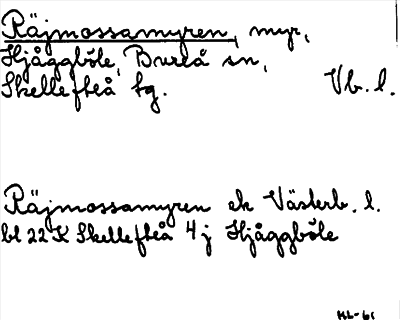 Räjmossamyren, myr,
Hjåggböle, Bureå sn,
Skellefteå tg. Vb. l.
Räjmossamyren ek Västerb. l.
bl 22 K Skellefteå 4 j Hjåggböle